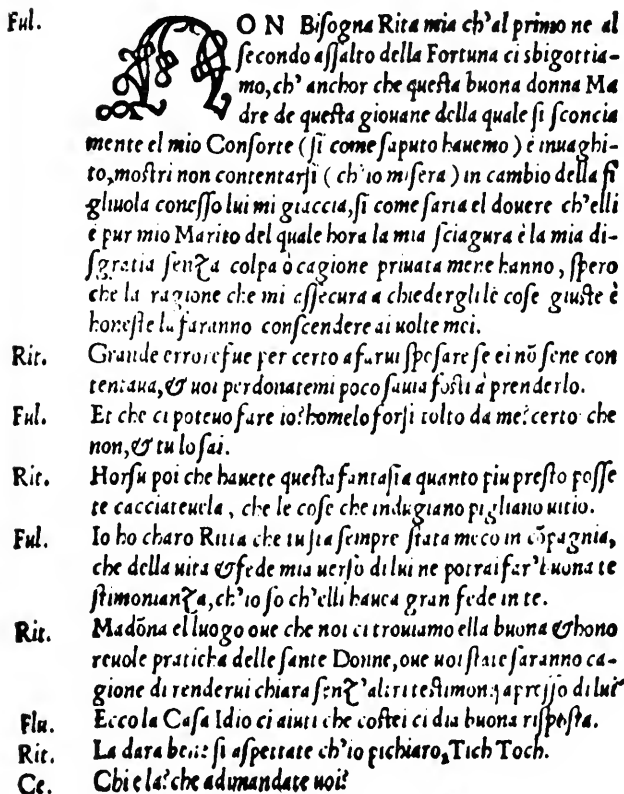 Ful. NON Bisogna Rita mia ch'al primo ne al
secondo assalto della Fortuna ci sbigottia-
mo, ch' anchor che questa buona donna Ma
dre de questa giouane della quale si sconcia
mente el mio Consorte (si come saputo hauemo) è inuaghi-
to, mostri non contentarsi (ch'io misera) in cambio della fi
gliuola conesso lui mi giaccia, si come faria el douere ch'elli
è pur mio Marito del quale hora la mia sciagura è la mia di-
sgratia senza colpa ò cagione priuata mene hanno, spero
che la ragione che mi assecura a chiedergli le cose giuste è
honeste la faranno conscendere ai uolte mei.
Rit. Grande errore fue per certo a farui sposare se ei nõ sene con
tentaua, & uoi perdonatemi poco sauia fosti à prenderlo.
Ful. Et che ci poteuo fare io? homelo forsi tolto da me? certo che
non, & tu lo sai.
Rit. Horsu poi che hauete questa fantasia quanto piu presto posse
te cacciateuela, che le cose che indugiano pigliano uitio.
Ful. Io ho charo Ritta che tu sia sempre stata meco in cõpagnia,
che della uita & fede mia uerso di lui ne potrai far' buona te
stimonianza, ch'io so ch'elli hauea gran fede in te.
Rit. Madõna el luogo oue che noi ci trouiamo ella buona & hono
reuole praticha delle sante Donne, oue uoi state faranno ca-
gione di renderui chiara senz'altri testimonij apresso di lui
Flu. Ecco la Casa Idio ci aiuti che costei ci dia buona risposta.
Rit. La dara bene si aspettate ch'io pichiaro, Tich Toch.
Ce. Chi e la? che adimandate uoi?